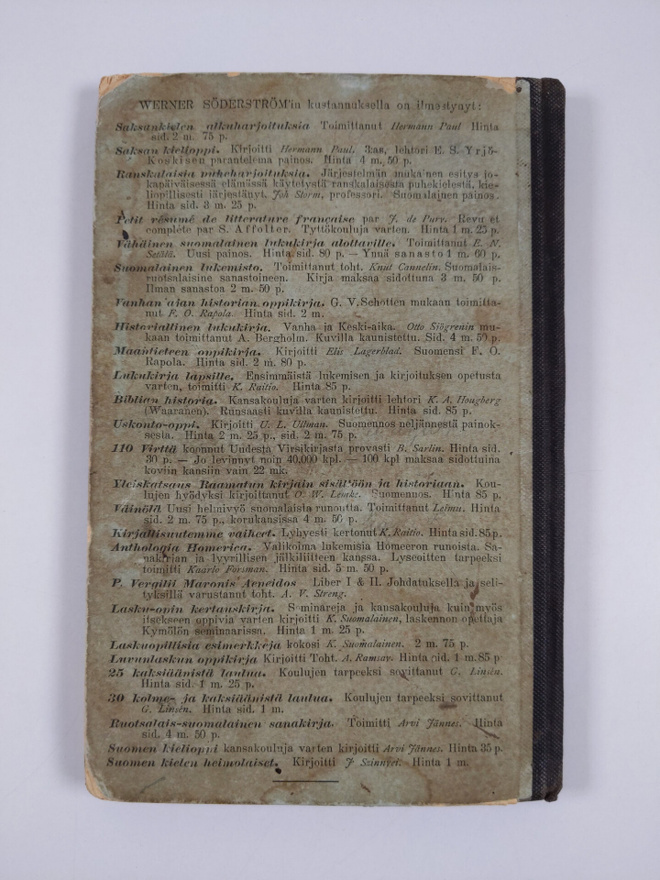 WERNER SÖDERSTRÖM'in kustannuksella on ilmestynyt:
Saksankielen alkuharjoituksia Toimittanut Hermann Paul Hinta
sid. 2 m. 75 p.
Saksan kielioppi. Kirjoitti Hermann Paul. 3:as, lehtori E. S. Yrjö-
Koskisen parantelema painos. Hinta 4 m. 50 p.
Ranskalaisia puheharjoituksia. Järjestelmän mukainen esitys jo-
kapäiväisessä elämässä käytetystä ranskalaisesta puhekielestä, kie-
liopillisesti järjestänyt. Joh Storm, professori. Suomalainen painos.
Hinta sid. 3 m. 25 p.
Petit résumé de litterature française par J. de Pury. Revu et
complété par S. Affolter. Tyttökouluja varten. Hinta 1 m. 25 p.
Vähäinen suomalainen lukukirja alottaville. Toimittanut E. N.
Setälä. Uusi painos. Hinta sid. 80 p. — Ynnä sanasto 1 m. 60 p.
Suomalainen lukemisto. Toimittanut toht. Knut Cannelin. Suomalais-
ruotsalaisine sanastoineen. Kirja maksaa sidottuna 3 m. 50 p.
Ilman sanastoa 2 m. 50 p.
Vanhan ajan historian oppikirja. G. V. Schotten mukaan toimitta-
nut F. O. Rapola. Hinta sid. 2 m.
Historiallinen lukukirja. Vanha ja Keski-aika. Otto Sjögrenin mu-
kaan toimittanut A. Bergholm. Kuvilla kaunistettu. Sid. 4 m. 50 p.
Maantieteen oppikirja. Kirjoitti Elis Lagerblad. Suomensi F. O.
Rapola. Hinta sid. 2 m. 80 p.
Lukukirja lapsille. Ensimmäistä lukemisen ja kirjoituksen opetusta
varten, toimitti K. Raitio. Hinta 85 p.
Biblian historia. Kansakouluja varten kirjoitti lehtori K. A. Hougberg
(Waaranen). Runsaasti kuvilla kaunistettu. Hinta sid. 85 p.
Uskonto-oppi. Kirjoitti U. L. Ullman. Suomennos neljännestä painok-
sesta. Hinta 2 m. 25 p., sid. 2 m. 75 p.
110 Virttä koonnut Uudesta Virsikirjasta provasti B. Sarlin. Hinta sid.
30 p. — Jo levinnyt noin 40,000 kpl. — 100 kpl maksaa sidottuina
koviin kansiin vain 22 mk.
Yleiskatsaus Raamatun kirjain sisältöön ja historiaan. Kou-
lujen hyödyksi kirjoittanut O. W. Lemke. Suomennos. Hinta 85 p.
Väinölä Uusi helmivyö suomalaista runoutta. Toimittanut Leimu. Hinta
sid. 2 m. 75 p., korukansissa 4 m. 50 p.
Kirjallisuutemme vaiheet. Lyhyesti kertonut K. Raitio. Hinta sid. 85 p.
Anthologia Homerica. Valikoima lukemisia Homeron runoista. Sa-
nakirjan ja lyyrillisen jälkiliitteen kanssa. Lyseoitten tarpeeksi
toimitti Kaarlo Forsman. Hinta sid. 5 m. 50 p.
P. Vergilii Maronis Æneidos Liber I & II. Johdatuksella ja seli-
tyksillä varustanut toht. A. V. Streng.
Lasku-opin kertauskirja. Seminareja ja kansakouluja kuin myös
itsekseen oppivia varten kirjoitti K. Suomalainen, laskennon opettaja
Kymölön seminaarissa. Hinta 1 m. 25 p.
Laskuopillisia esimerkkejä kokosi K. Suomalainen. 2 m. 75 p.
Luvunlaskun oppikirja Kirjoitti Toht. A. Ramsay. Hinta sid. 1 m. 85 p
25 kaksiäänistä laulua. Koulujen tarpeeksi sovittanut G. Linsén.
Hinta sid. 1 m. 25 p.
30 kolme- ja kaksiäänistä laulua. Koulujen tarpeeksi sovittanut
G. Linsén. Hinta sid. 1 m.
Ruotsalais-suomalainen sanakirja. Toimitti Arvi Jännes. Hinta
sid. 4 m. 50 p.
Suomen kielioppi kansakouluja varten kirjoitti Arvi Jännes. Hinta 35 p.
Suomen kielen heimolaiset. Kirjoitti J. Szinnyei. Hinta 1 m.